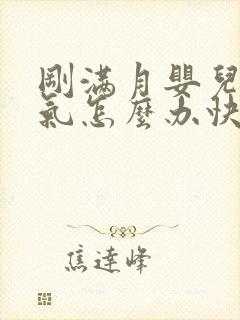 剛滿月嬰兒
氣怎麼办快
焦達峰